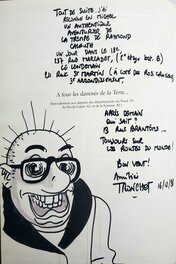 TOUT DE SUITE, J'AI
RECONNU EN MICHEL
UN AUTHENTIQUE
AVENTURIER DE
LA TREMPE DE RAYMOND
CALBUTH
UN JOUR DANS LE 18e
137 RUE MARCADET, (2e étage
LE LENDEMAIN
RUE St MARTIN (À CÔTÉ DU
3e ARRONDISSEMENT.
A tous les damnés de la Terre...
(Spécialement aux damnés des départements du Nord, 59
du Pas-de-Calais, 62, et de la Somme,
APRÈS DEMAIN
QUI SAIT ?
13 RUE BRANTÔME...
TOUJOURS SUR
LES ROUTES DU MONDE !
BON VENT !
Amitiés
TRONCHET